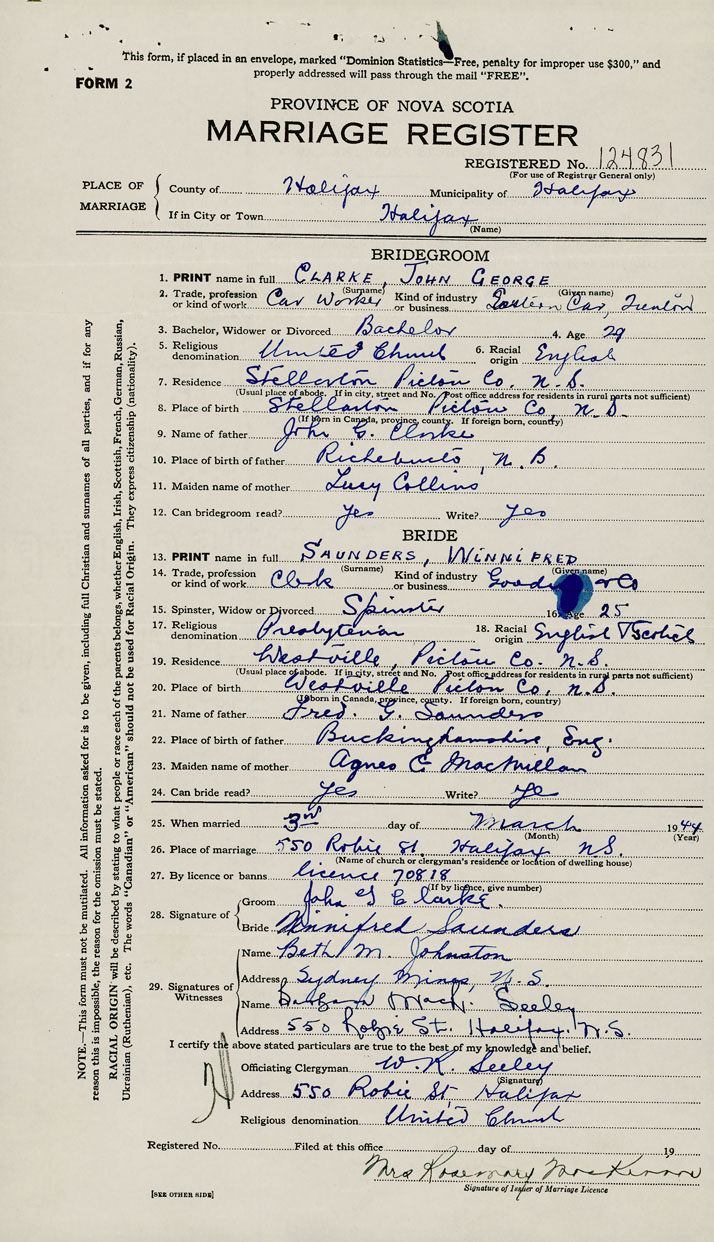 This form, if placed in an envelope, marked "Dominion Statistics—Free, penalty for improper use $300," and
properly addressed will pass through the mail "FREE".
FORM 2
PROVINCE OF NOVA SCOTIA
MARRIAGE REGISTER
REGISTERED No. 124831
(For use of Registrar General only)
PLACE OF MARRIAGE
County of Halifax Municipality of Halifax
If in City or Town Halifax
(Name)
BRIDEGROOM
1. PRINT name in full CLARKE, JOHN GEORGE
(Surname) (Given name)
2. Trade, profession or kind of work Car Worker Kind of industry or business Eastern Car, Trenton
3. Bachelor, Widower or Divorced Bachelor 4. Age 29
5. Religious denomination United Church 6. Racial origin English
7. Residence Stellarton Pictou Co, N.S.
(Usual place of abode. If in city, street and No. Post office address for residents in rural parts not sufficient)
8. Place of birth Stellarton Pictou Co, N.S.
(If born in Canada, province, county. If foreign born, country)
9. Name of father John G. Clarke
10. Place of birth of father Richebucto, N.B.
11. Maiden name of mother Lucy Collins
12. Can bridegroom read? Yes Write? Yes
BRIDE
13. PRINT name in full SAUNDERS, WINNIFRED
(Surname) (Given name)
14. Trade, profession or kind of work Clerk Kind of industry or business & Co
15. Spinster, Widow or Divorced Spinster 16. Age 25
17. Religious denomination Presbyterian 18. Racial origin English & Scotch
19. Residence Westville, Pictou Co. N.S.
(Usual place of abode. If in city, street and No. Post office address for residents in rural parts not sufficient)
20. Place of birth Westville Picton Co, N.S.
(If born in Canada, province, county. If foreign born, country)
21. Name of father Fred. G. Saunders
22. Place of birth of father Buckinghamshire, Eng.
23. Maiden name of mother Agnes C MacMillan
24. Can bride read? Yes Write? Ye
25. When married 3rd day of March 1944
(Month) (Year)
26. Place of marriage 550 Robie St Halifax N.S.
(Name of church or clergyman's residence or location of dwelling house)
27. By licence or banns licence 70818
(If by licence, give number)
28. Signature of
Groom John G Clarke.
Bride Winnifred Saunders
29. Signatures of Witnesses
Name Beth M. Johnston
Address Sydney Mines, N.S.
Name Barbara MacK. Seeley
Address 550 Robie St. Halifax. N.S.
I certify the above stated particulars are true to the best of my knowledge and belief.
Officiating Clergyman W. K. Seeley
(Signature)
Address 550 Robie St Halifax
Religious denomination United Church
Registered No. Filed at this office day of 19
Mrs Rosemary MacKinnon
Signature of Issuer of Marriage Licence
[SEE OTHER SIDE]
NOTE.—This form must not be mutilated. All information asked for is to be given, including full Christian and surnames of all parties, and if for any
reason this is impossible, the reason for the omission must be stated.
RACIAL ORIGIN will be described by stating to what people or race each of the parents belongs, whether English, Irish, Scottish, French, German, Russian,
Ukrainian (Ruthenian), etc. The words "Canadian" or "American" should not be used for Racial Origin. They express citizenship (nationality).